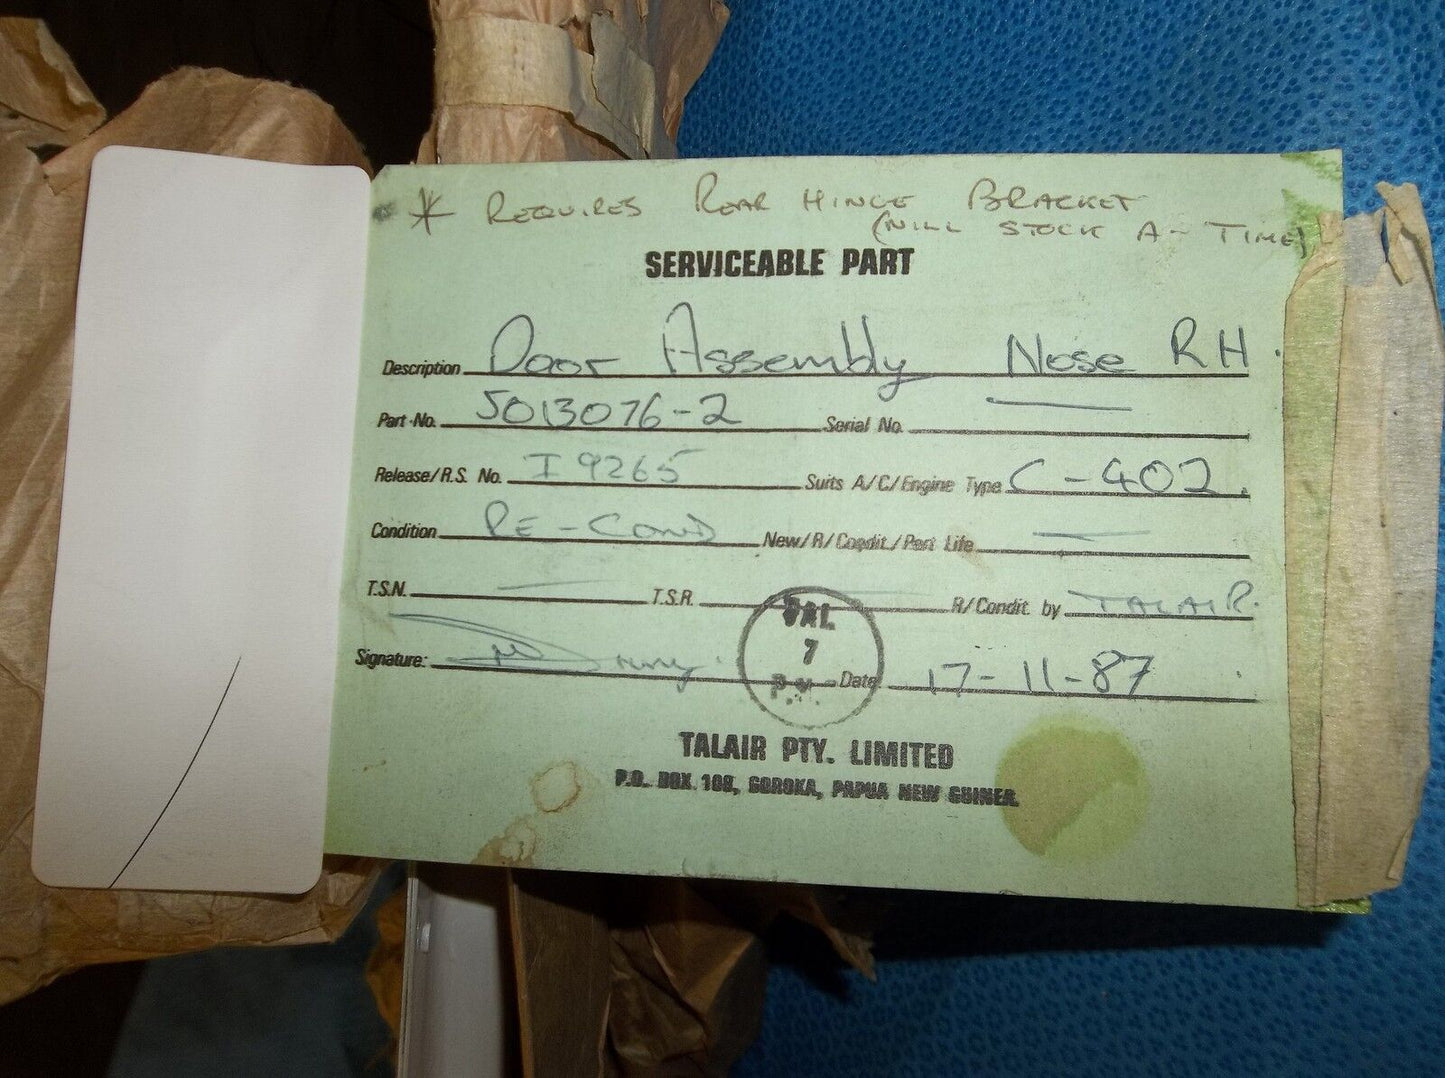 * REQUIRES REAR HINGE BRACKET
(NILL STOCK A- TIME)
SERVICEABLE PART
Description Door Assembly Nose RH.
Part No. 5013076-2 Serial No.
Release/R.S. No. I 9265 Suits A/C/Engine Type C-402.
Condition RE-COND New/R/Condit./Part Life —
T.S.N. — T.S.R. — R/Condit. by TALAIR.
Signature: Date 17-11-87
TAL
7
TALAIR PTY. LIMITED
P.O. BOX 108, GOROKA, PAPUA NEW GUINEA.